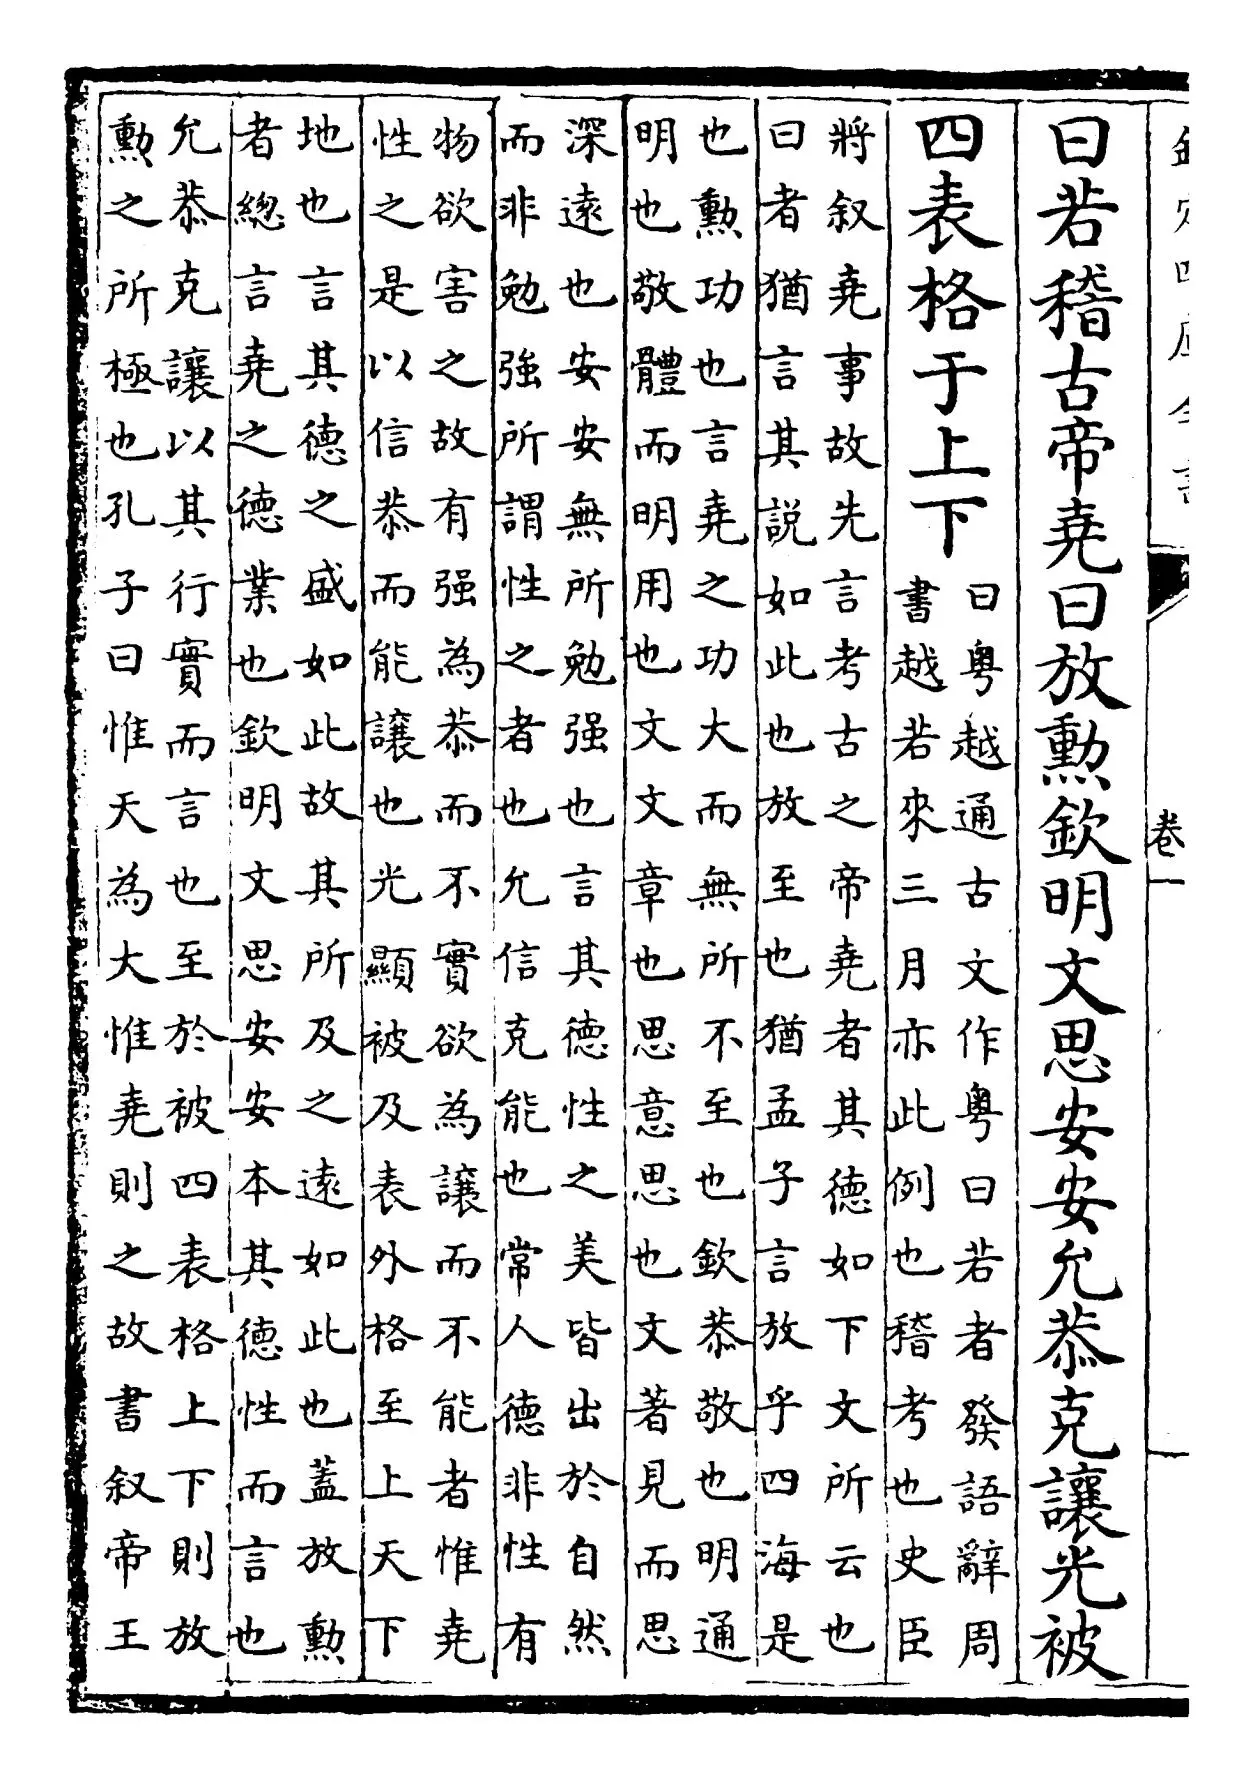 欽定四庫全書
卷一
曰若稽古帝堯曰放勲欽明文思安安允恭克讓光被
四表格于上下
曰粤越通古文作粤曰若者發語辭周
書越若來三月亦此例也稽考也史臣
將叙堯事故先言考古之帝堯者其德如下文所云也
曰者猶言其説如此也放至也猶孟子言放乎四海是
也勲功也言堯之功大而無所不至也欽恭敬也明通
明也敬體而明用也文文章也思意思也文著見而思
深逺也安安無所勉强也言其德性之美皆出於自然
而非勉強所謂性之者也允信克能也常人德非性有
物欲害之故有强為恭而不實欲為讓而不能者惟堯
性之是以信恭而能讓也光顯被及表外格至上天下
地也言其德之盛如此故其所及之逺如此也蓋放勲
者緫言堯之德業也欽明文思安安本其德性而言也
允恭克讓以其行實而言也至於被四表格上下則放
勲之所極也孔子曰惟天為大惟堯則之故書叙帝王